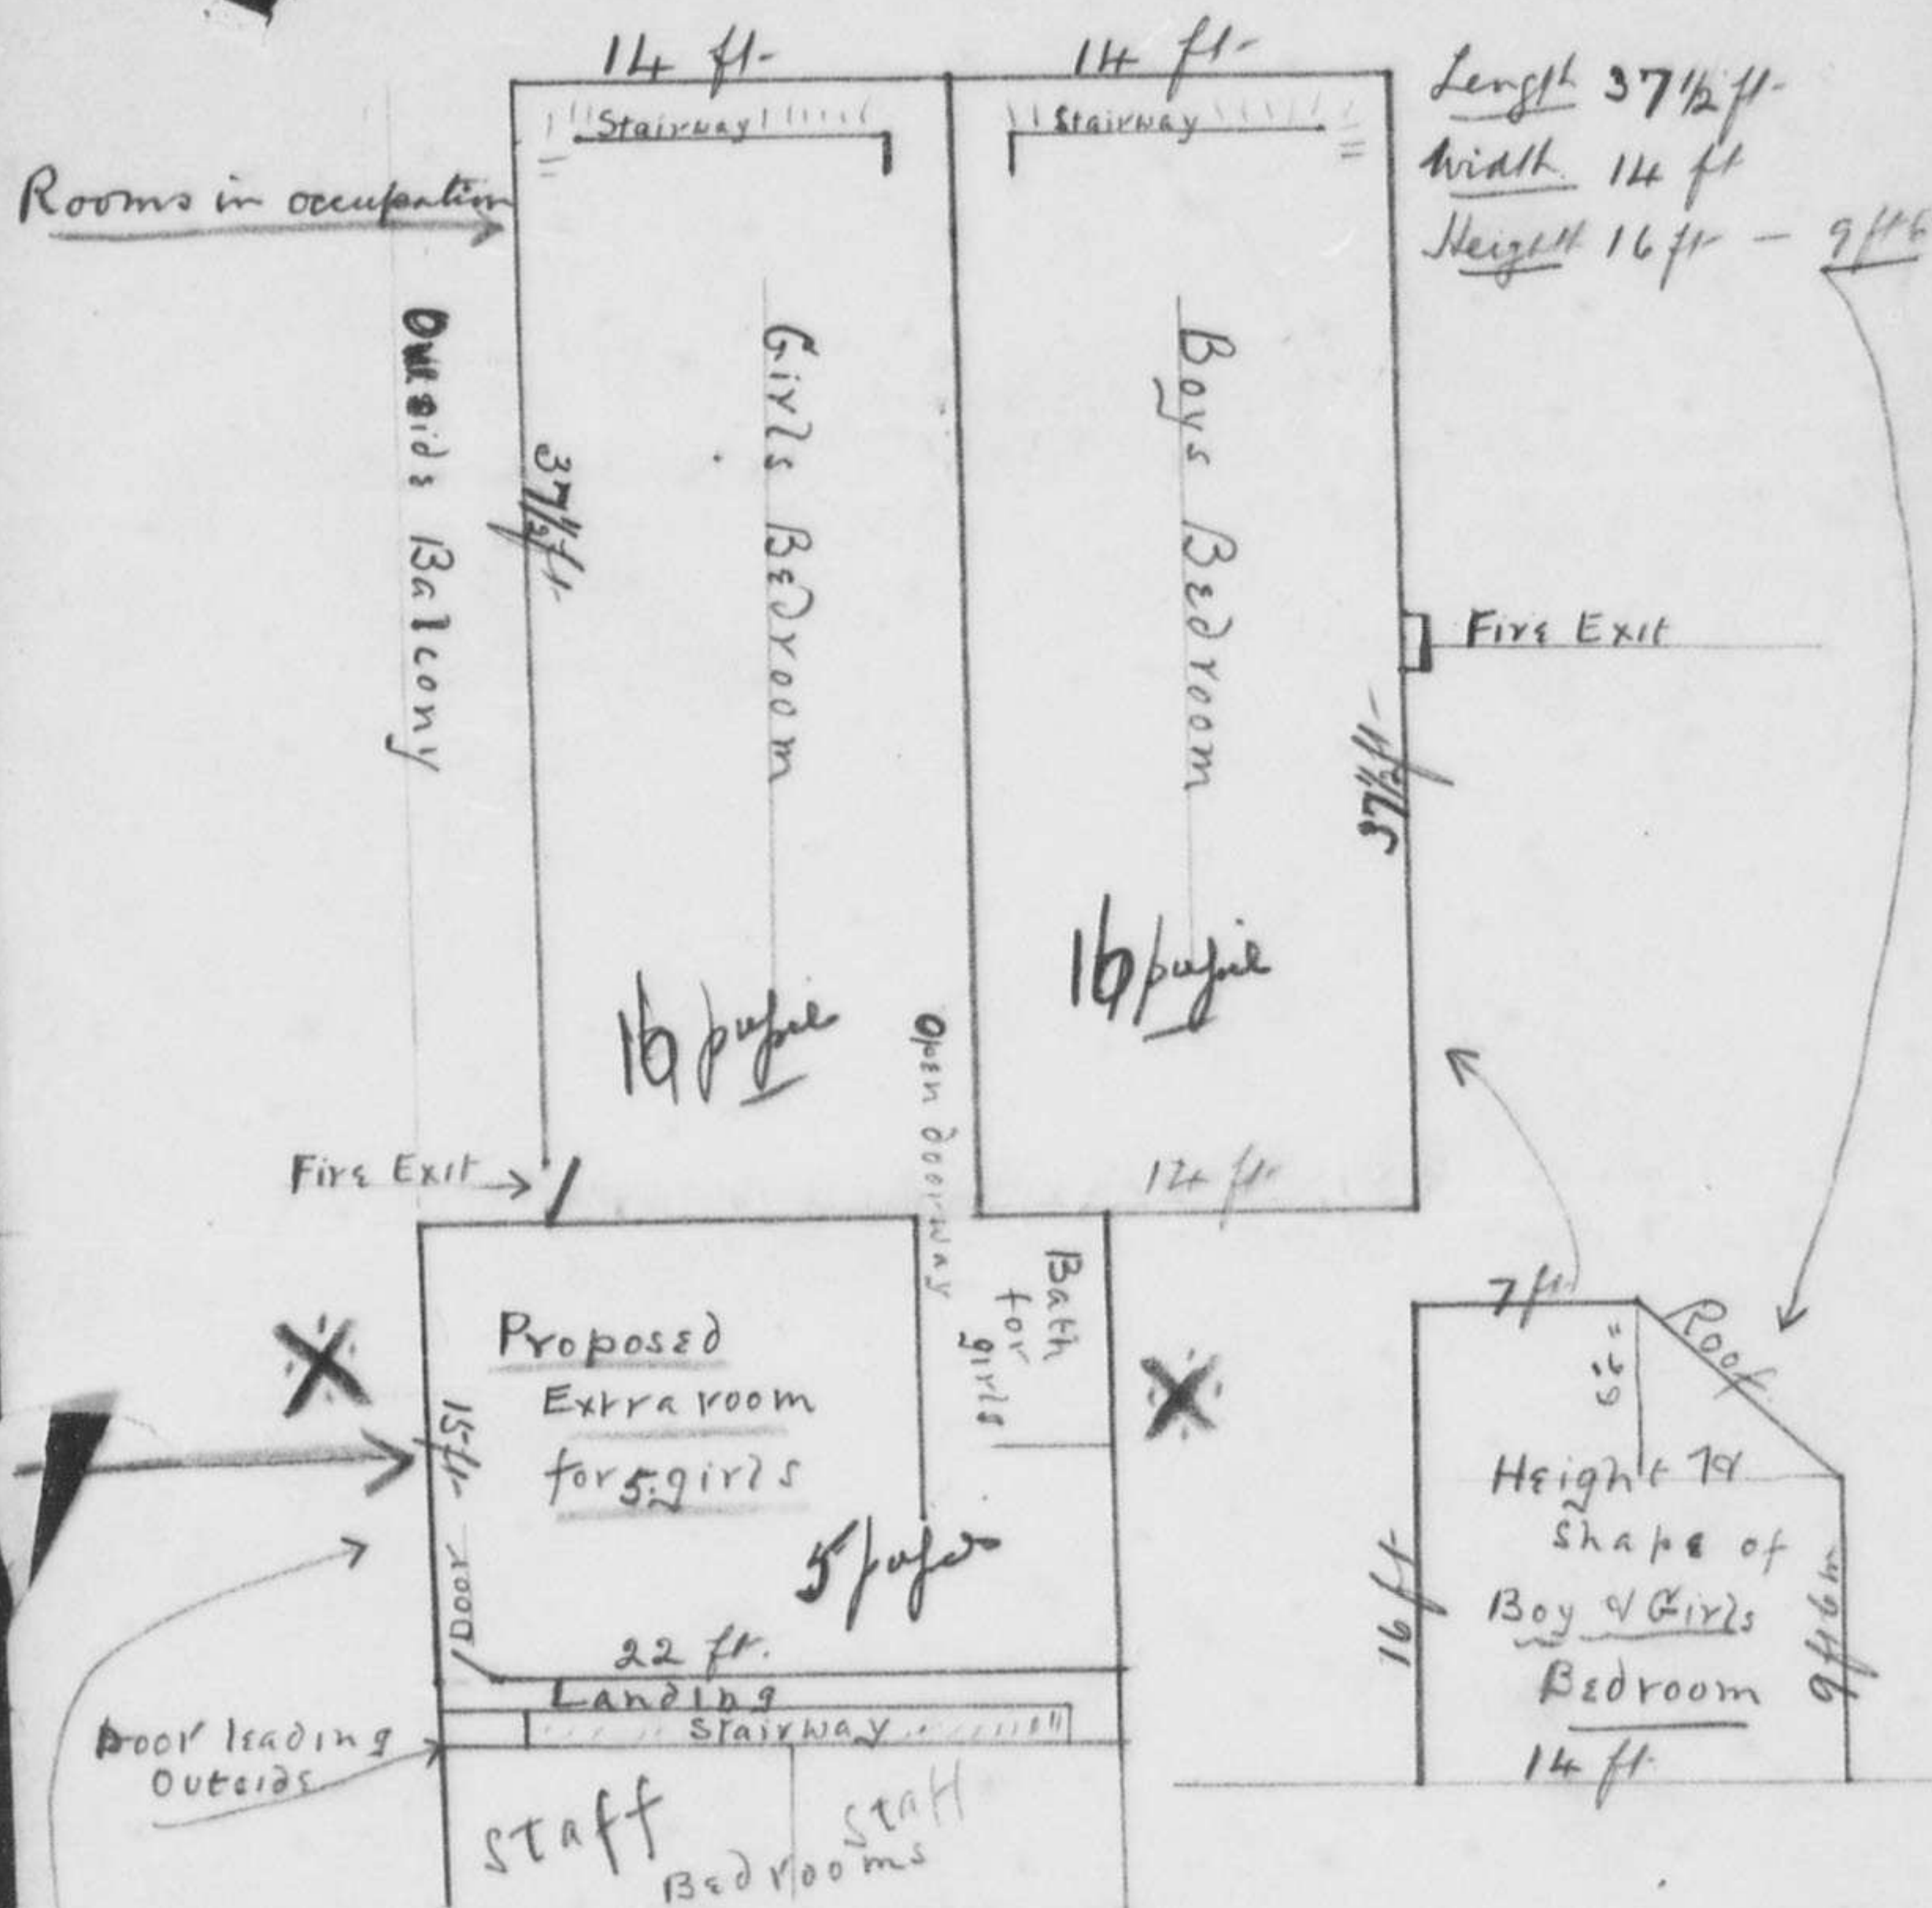 14 ft
14 ft
Length 37 1/2 ft
Width 14 ft
Height 16 ft — 9 ft 6
Stairway
Stairway
Rooms in occupation
Outside Balcony
37 1/2 ft
Girls Bedroom
Boys Bedroom
Fire Exit
37 1/2 ft
16 pupils
16 pupils
Open doorway
Fire Exit
14 ft
Bath
for
girls
Proposed
Extra room
for 5 girls
15 ft
Door
5 pupils
22 ft.
Landing
Stairway
Door leading
Outside
Staff
Staff
Bedrooms
7 ft
Roof
Height &
shape of
Boy & Girls
Bedroom
16 ft
9 ft 6 in
14 ft